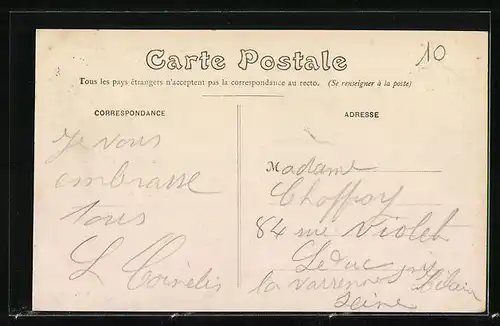 Carte Postale
10
Tous les pays étrangers n'acceptent pas la correspondance au recto. (Se renseigner à la poste)
CORRESPONDANCE
ADRESSE
Je vous
embrasse
tous
L Cornelis
Madame
Choffroy
84 rue Violet
Leduc
la Varenne St Hilaire
Seine